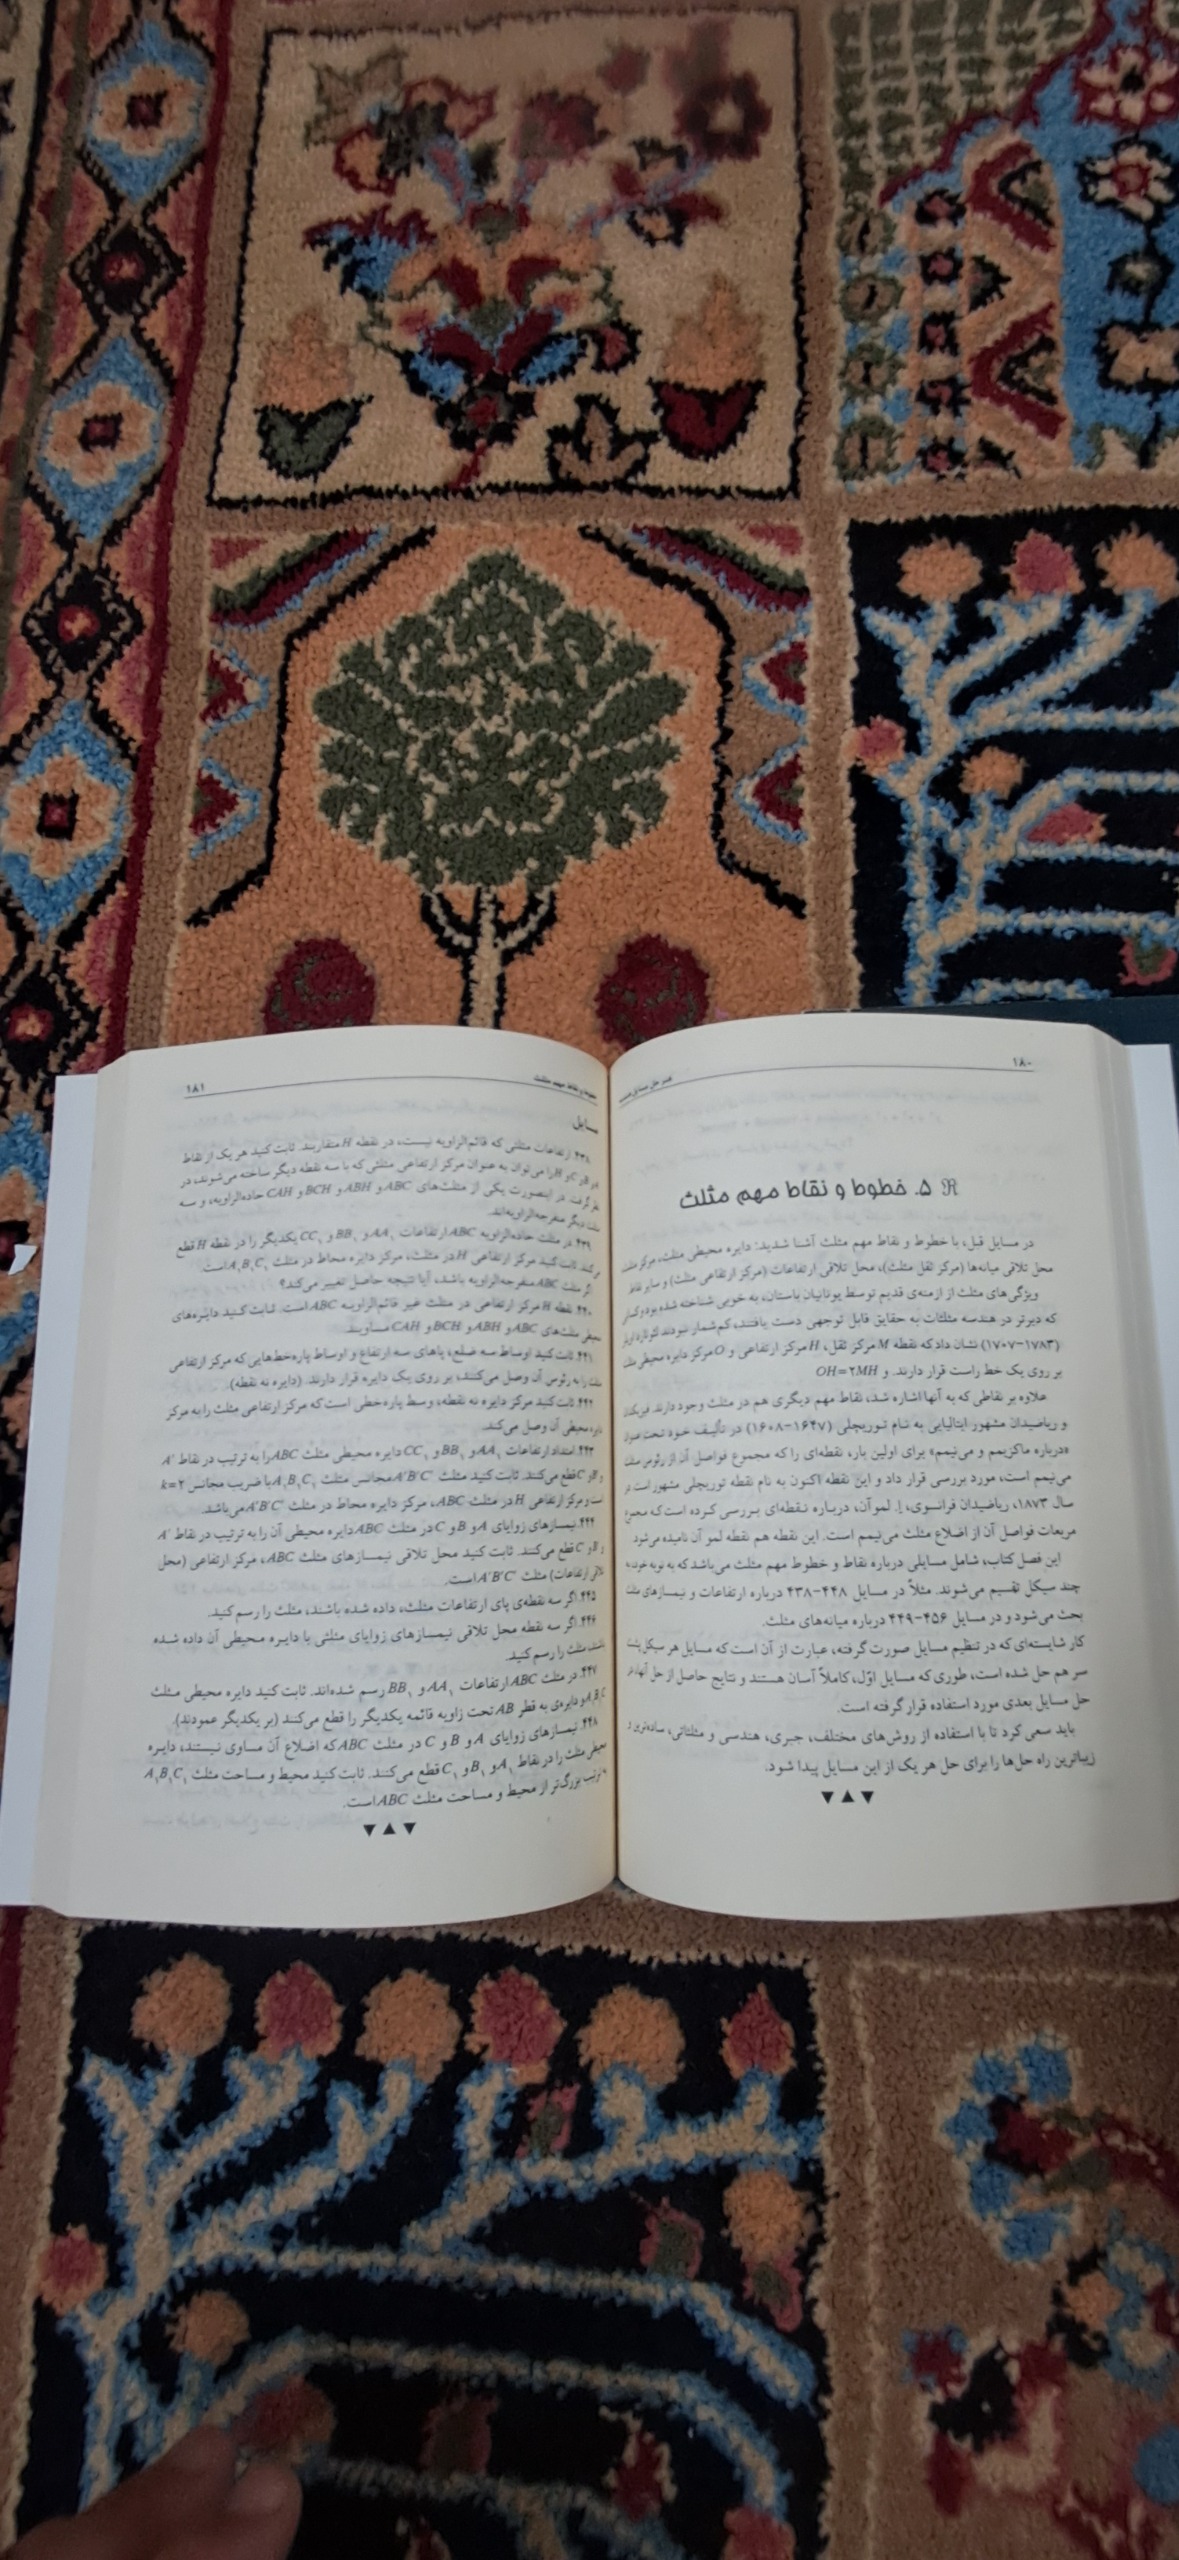 ۱۸۰
هنر حل مسایل هندسه
ℜ ۵. خطوط و نقاط مهم مثلث
در مسایل قبل، با خطوط و نقاط مهم مثلث آشنا شدید: دایره محیطی مثلث، مرکز مثلث
محل تلاقی میانه‌ها (مرکز ثقل مثلث)، محل تلاقی ارتفاعات (مرکز ارتفاعی مثلث) و سایر نقاط
ویژگی‌های مثلث از ازمنه‌ی قدیم توسط یونانیان باستان، به خوبی شناخته شده بود و کسانی
که دیرتر در هندسه مثلثات به حقایق قابل توجهی دست یافتند، کم‌شمار نبودند لئونارد اویلر
(۱۷۸۳-۱۷۰۷) نشان داد که نقطه M مرکز ثقل، H مرکز ارتفاعی و O مرکز دایره محیطی مثلث
بر روی یک خط راست قرار دارند. و OH=۲MH
علاوه بر نقاطی که به آنها اشاره شد، نقاط مهم دیگری هم در مثلث وجود دارند. فیزیکدان
و ریاضیدان مشهور ایتالیایی به نام توریچلی (۱۶۴۷-۱۶۰۸) در تألیف خود تحت عنوان
«درباره ماکزیمم و می‌نیمم» برای اولین بار، نقطه‌ای را که مجموع فواصل آن از رئوس مثلث
می‌نیمم است، مورد بررسی قرار داد و این نقطه اکنون به نام نقطه توریچلی مشهور است. در
سال ۱۸۷۳، ریاضیدان فرانسوی، إ. لموآن، درباره نقطه‌ای بررسی کرده است که مجموع
مربعات فواصل آن از اضلاع مثلث می‌نیمم است. این نقطه هم نقطه لمو آن نامیده می‌شود.
این فصل کتاب، شامل مسایلی درباره نقاط و خطوط مهم مثلث می‌باشد که به نوبه خود، به
چند سیکل تقسیم می‌شوند. مثلاً در مسایل ۴۴۸-۴۳۸ درباره ارتفاعات و نیمسازهای مثلث
بحث می‌شود و در مسایل ۴۵۶-۴۴۹ درباره میانه‌های مثلث.
کار شایسته‌ای که در تنظیم مسایل صورت گرفته، عبارت از آن است که مسایل هر سیکل پشت
سر هم حل شده است، طوری که مسایل اوّل، کاملاً آسان هستند و نتایج حاصل از حل آنها، در
حل مسایل بعدی مورد استفاده قرار گرفته است.
باید سعی کرد تا با استفاده از روش‌های مختلف، جبری، هندسی و مثلثاتی، ساده‌ترین و
زیباترین راه حل‌ها را برای حل هر یک از این مسایل پیدا شود.
▼▲▼
خطوط و نقاط مهم مثلث
۱۸۱
مسایل
۴۳۸. ارتفاعات مثلثی که قائم‌الزاویه نیست، در نقطه H متقاربند. ثابت کنید هر یک از نقاط
و B و C و H را می‌توان به عنوان مرکز ارتفاعی مثلثی که با سه نقطه دیگر ساخته می‌شوند، در
نظر گرفت. در اینصورت یکی از مثلث‌های ABC و ABH و BCH و CAH حاده‌الزاویه، و سه
مثلث دیگر منفرجه‌الزاویه‌اند.
۴۳۹. در مثلث حاده‌الزاویه ABC ارتفاعات AA₁ و BB₁ و CC₁ یکدیگر را در نقطه H قطع
می‌کنند. ثابت کنید مرکز ارتفاعی H در مثلث، مرکز دایره محاط در مثلث A₁B₁C₁ است.
اگر مثلث ABC منفرجه‌الزاویه باشد، آیا نتیجه حاصل تغییر می‌کند؟
۴۴۰. نقطه H مرکز ارتفاعی در مثلث غیر قائم‌الزاویه ABC است. ثابت کنید دایره‌های
محیطی مثلث‌های ABC و ABH و BCH و CAH مساویند.
۴۴۱. ثابت کنید اوساط سه ضلع، پاهای سه ارتفاع و اوساط پاره‌خط‌هایی که مرکز ارتفاعی
مثلث را به رئوس آن وصل می‌کنند، بر روی یک دایره قرار دارند. (دایره نه نقطه).
۴۴۲. ثابت کنید مرکز دایره نه نقطه، وسط پاره‌خطی است که مرکز ارتفاعی مثلث را به مرکز
دایره محیطی آن وصل می‌کند.
۴۴۳. امتداد ارتفاعات AA₁ و BB₁ و CC₁ دایره محیطی مثلث ABC را به ترتیب در نقاط A'
و B' و C' قطع می‌کنند. ثابت کنید مثلث A'B'C' مجانس مثلث A₁B₁C₁ با ضریب مجانس k=۲
است و مرکز ارتفاعی H در مثلث ABC، مرکز دایره محاط در مثلث A'B'C' می‌باشد.
۴۴۴. نیمسازهای زوایای A و B و C در مثلث ABC دایره محیطی آن را به ترتیب در نقاط A'
و B' و C' قطع می‌کنند. ثابت کنید محل تلاقی نیمسازهای مثلث ABC، مرکز ارتفاعی (محل
تلاقی ارتفاعات) مثلث A'B'C' است.
۴۴۵. اگر سه نقطه‌ی پای ارتفاعات مثلث، داده شده باشند، مثلث را رسم کنید.
۴۴۶. اگر سه نقطه محل تلاقی نیمسازهای زوایای مثلثی با دایره محیطی آن داده شده
باشند، مثلث را رسم کنید.
۴۴۷. در مثلث ABC ارتفاعات AA₁ و BB₁ رسم شده‌اند. ثابت کنید دایره محیطی مثلث
A₁B₁C و دایره‌ی به قطر AB تحت زاویه قائمه یکدیگر را قطع می‌کنند (بر یکدیگر عمودند).
۴۴۸. نیمسازهای زوایای A و B و C در مثلث ABC که اضلاع آن مساوی نیستند، دایره
محیطی مثلث را در نقاط A₁ و B₁ و C₁ قطع می‌کنند. ثابت کنید محیط و مساحت مثلث A₁B₁C₁
به ترتیب بزرگ‌تر از محیط و مساحت مثلث ABC است.
▼▲▼